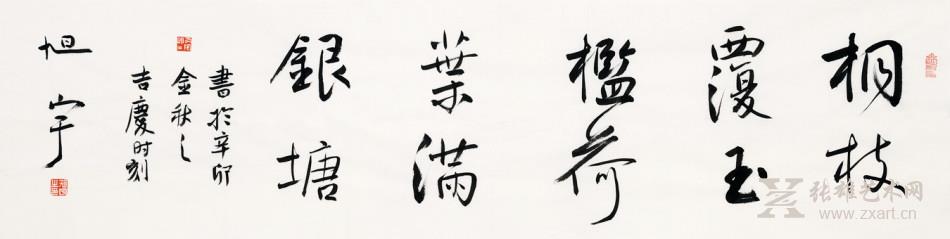 桐枝
覆玉
檻荷
葉滿
銀塘
書於辛卯
金秋之
吉慶时刻
旭宇
张雄艺术网
www.zxart.cn